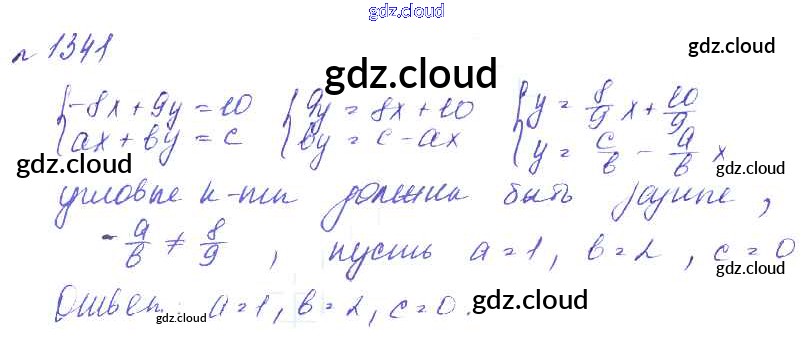 gdz.cloud
№ 1341
gdz.cloud
gdz.cloud
{-8x + 9y = 10 {9y = 8x + 10 {y = 8/9 x + 10/9
{ax + by = c {by = c - ax {y = c/b - a/b x
gdz.cloud
gdz.cloud
угловые к-ты должны быть разные,
-a/b ≠ 8/9, пусть a = 1, b = 2, c = 0
gdz.cloud
gdz.cloud
Ответ: a = 1, b = 2, c = 0.
gdz.cloud
gdz.cloud